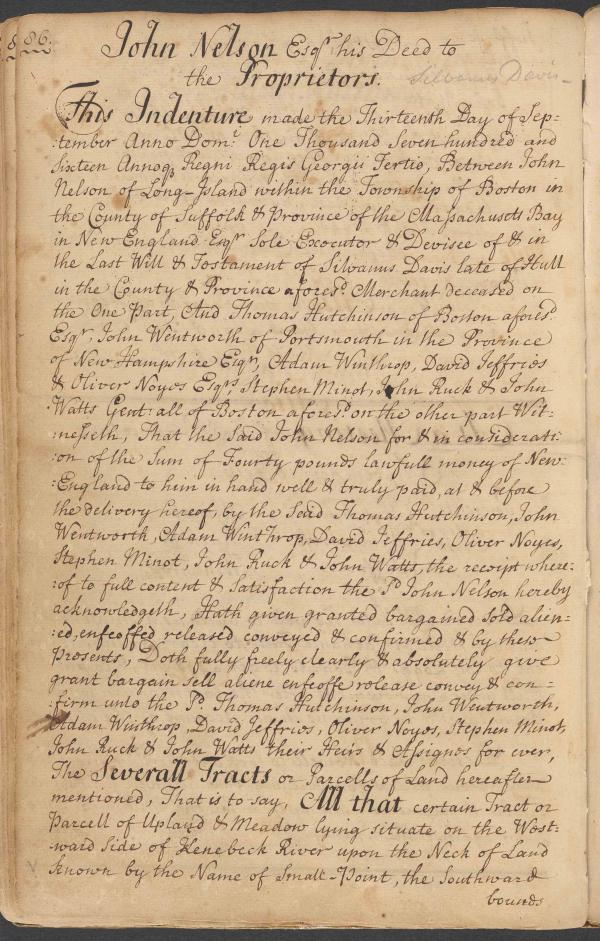 86.
John Nelson Esqr. his Deed to
the Proprietors. Silvanus Davis
This Indenture made the Thirteenth Day of Sep=
:tember Anno Domi. One Thousand Seven hundred and
Sixteen Annoq Regni Regis Georgii Tertio, Between John
Nelson of Long-Island within the Township of Boston in
the County of Suffolk & Province of the Massachusets Bay
in New England Esqr. Sole Executor & Devisee of & in
the Last Will & Testament of Silvanus Davis late of Hull
in the County & Province aforesd. Merchant deceased on
the One Part, And Thomas Hutchinson of Boston aforesd.
Esqr, John Wentworth of Portsmouth in the Province
of New Hampshire Esqr, Adam Winthrop, David Jeffries
& Oliver Noyes Esqrs. Stephen Minot, John Ruck & John
Watts Gent: all of Boston aforesd. on the other part Wit=
:nesseth, That the Said John Nelson for & in considerati=
:on of the Sum of Fourty pounds lawfull money of New=
:England to him in hand well & truly paid, at & before
the delivery hereof, by the Said Thomas Hutchinson, John
Wentworth, Adam Winthrop, David Jeffries, Oliver Noyes,
Stephen Minot, John Ruck & John Watts, the receipt where=
:of to full content & Satisfaction the Sd. John Nelson hereby
acknowledgeth, Hath given granted bargained Sold alien=
:ed, enfeoffed released conveyed & confirmed & by these
Presents, Doth fully freely clearly & absolutely give
grant bargain Sell aliene enfeoffe release convey & con=
:firm unto the Sd. Thomas Hutchinson, John Wentworth,
Adam Winthrop, David Jeffries, Oliver Noyes, Stephen Minot,
John Ruck & John Watts their Heirs & Assignes for ever,
The Severall Tracts or Parcells of Land hereafter
mentioned, That is to say, All that certain Tract or
Parcell of Upland & Meadow lying situate on the West=
:ward Side of Kenebeck River upon the Neck of Land
known by the Name of Small-Point, the Southward
bounds